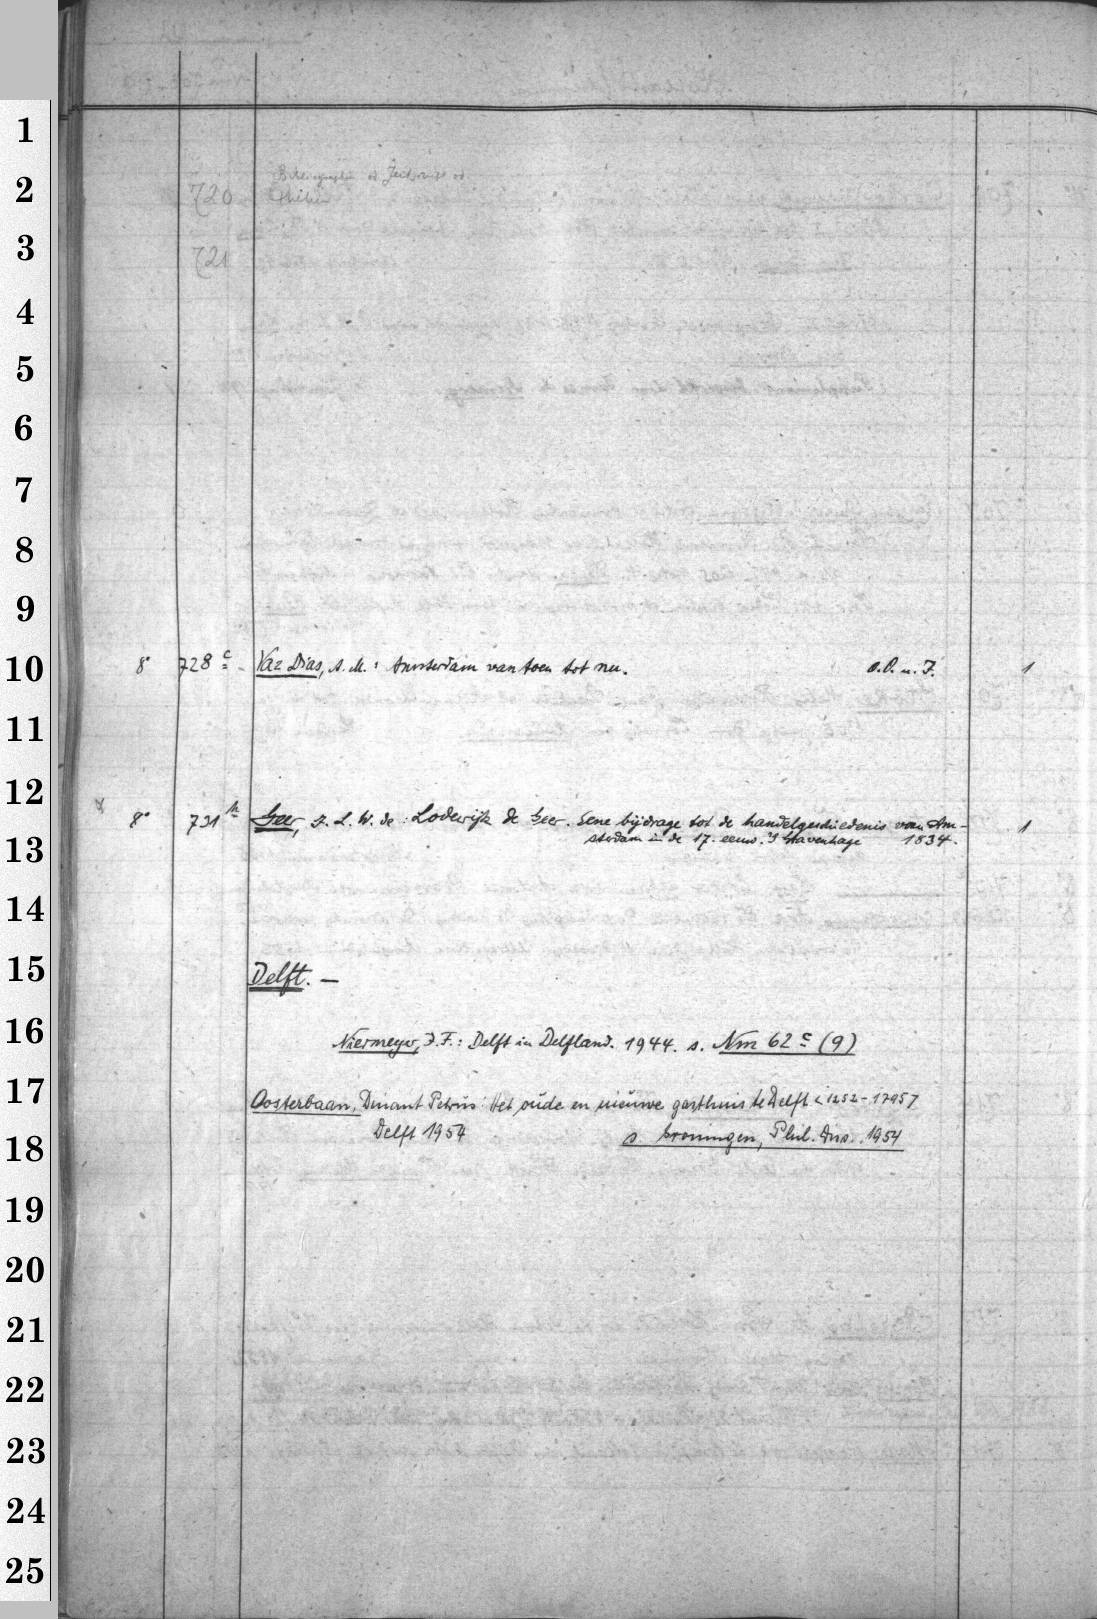 1
2
3
4
5
6
7
8
9
10
11
12
13
14
15
16
17
18
19
20
21
22
23
24
25
720
721
8° 728 c Vaz Dias, A. M.: Amsterdam van toen tot nu. o.O. u. J. 1
8° 731 h Geer, J. L. W. de: Lodewijk de Geer. Eene bijdrage tot de handelgeschiedenis van Am-
sterdam in de 17. eeuw. 's Gravenhage 1834. 1
Delft. —
Niermeyer, J. F.: Delft in Delfland. 1944. s. Nm 62 c (9)
Oosterbaan, Dinant Petrus: Het oude en nieuwe gasthuis te Delft <1252-1795>
Delft 1954 s. Groningen, Phil. Diss. 1954